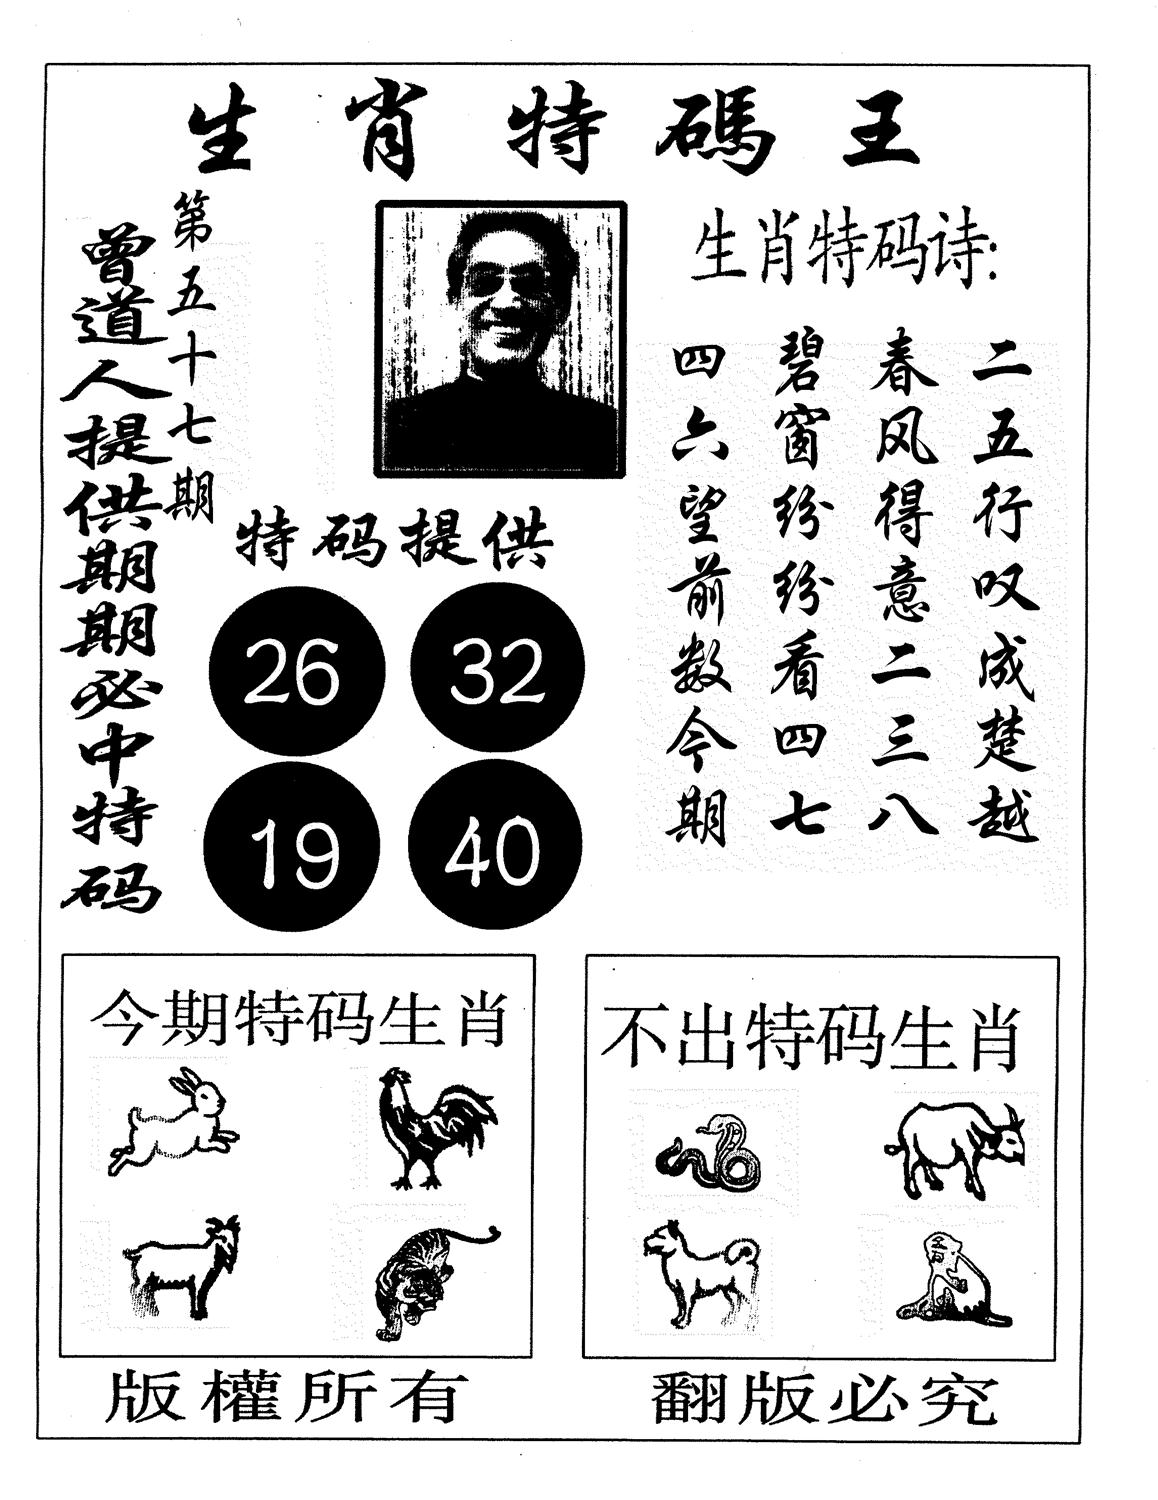 生肖特碼王
第五十七期
曾道人提供期期必中特码
特码提供
26 32
19 40
生肖特码诗:
二五行叹成楚越
春风得意二三八
碧窗纷纷看四七
四六望前数今期
今期特码生肖
不出特码生肖
版權所有
翻版必究